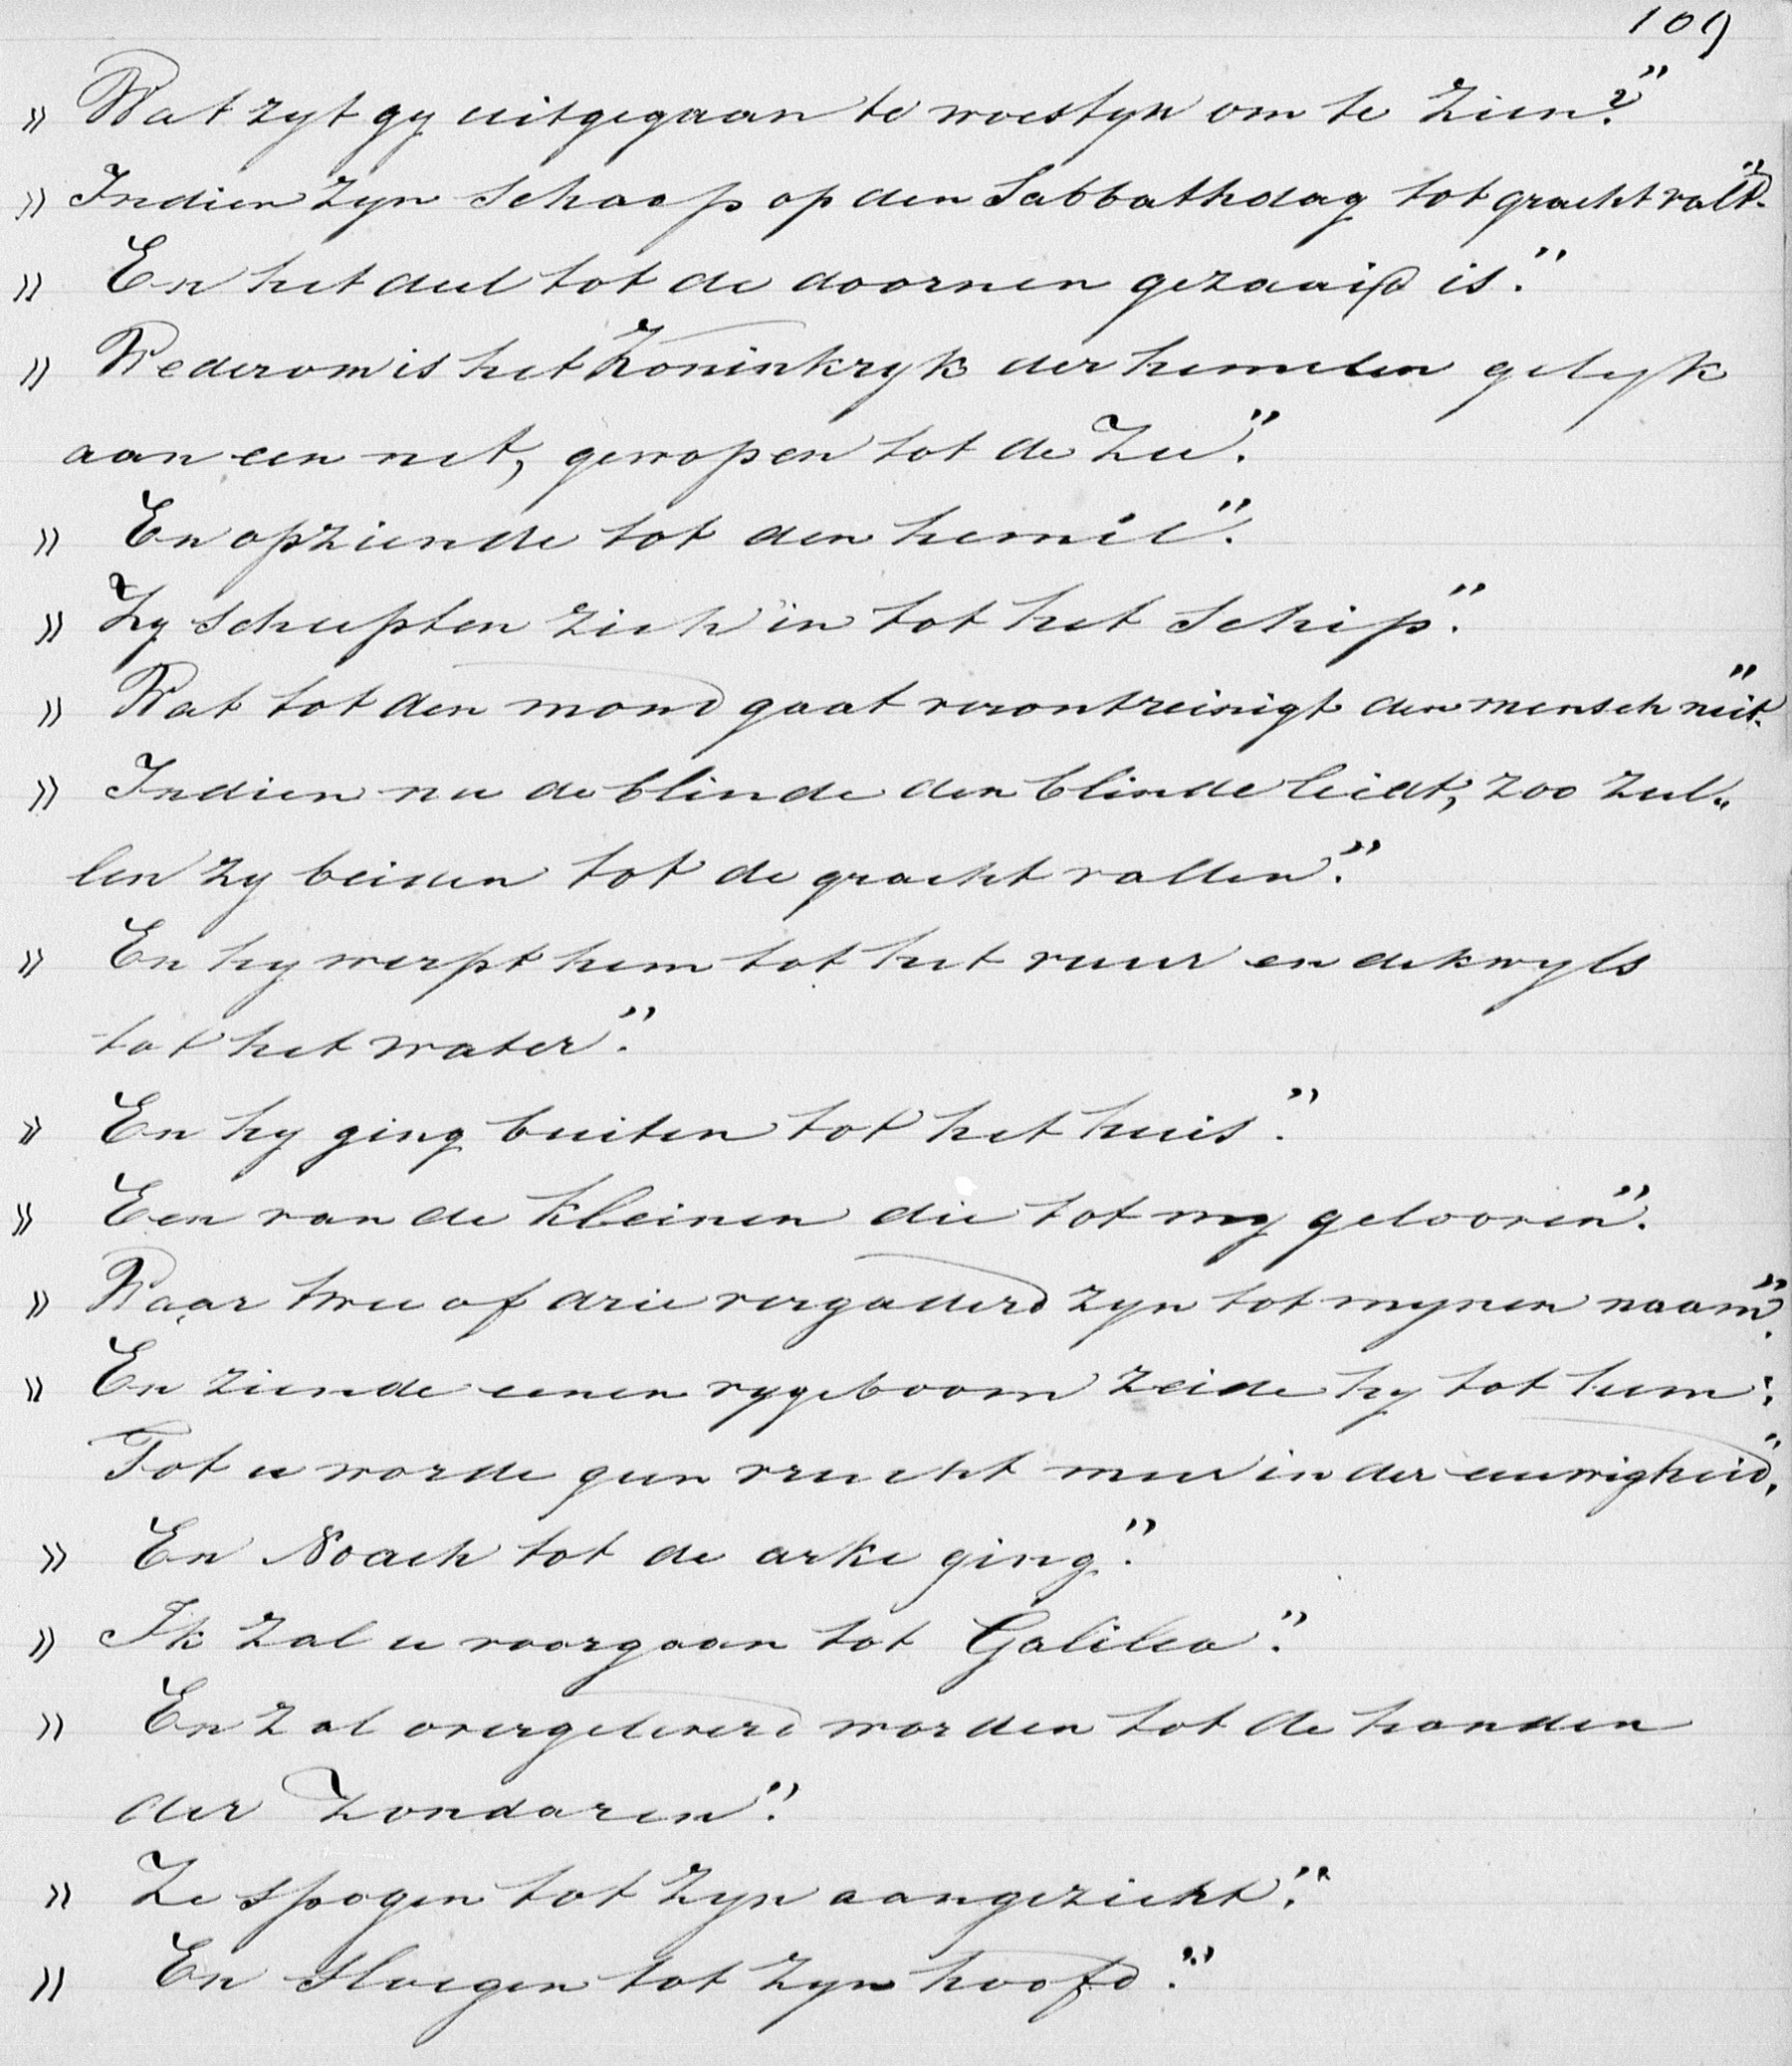 109
„ Wat zyt gy uitgegaan te woestyn om te zien?”
„ Indien zyn schaap op den Sabbathdag tot gracht valt”.
„ En het deel tot de doornen gezaaid is”.
„ Wederom is het Koninkryk der hemelen gelyk
aan een net, geworpen tot de Zee”.
„ En opziende tot den hemel”.
„ Zy scheepten zich in tot het schip”.
„ Wat tot den mond gaat verontreinigt den mensch niet”.
„ Indien nu de blinde den blinde leidt, zoo zul„
len zy beiden tot de gracht vallen”.
„ En hy werpt hem tot het vuur en dikwyls
tot het water”.
„ En hy ging buiten tot het huis”.
„ Een van de kleinen die tot my gelooven”.
„ Waar twee of drie vergaderd zyn tot mynen naam”.
„ En ziende eenen vygeboom zeide hy tot hem:
Tot u worde geen vrucht meer in der eeuwigheid”.
„ En Noach tot de arke ging”.
„ Ik zal u voorgaan tot Galilea”.
„ En zal overgeleverd worden tot de handen
der Zondaren”.
„ Ze spogen tot zyn aangezicht”.
„ En sloegen tot zyn hoofd”.